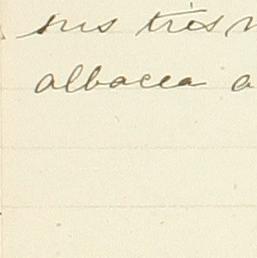 sus tres
albacea a